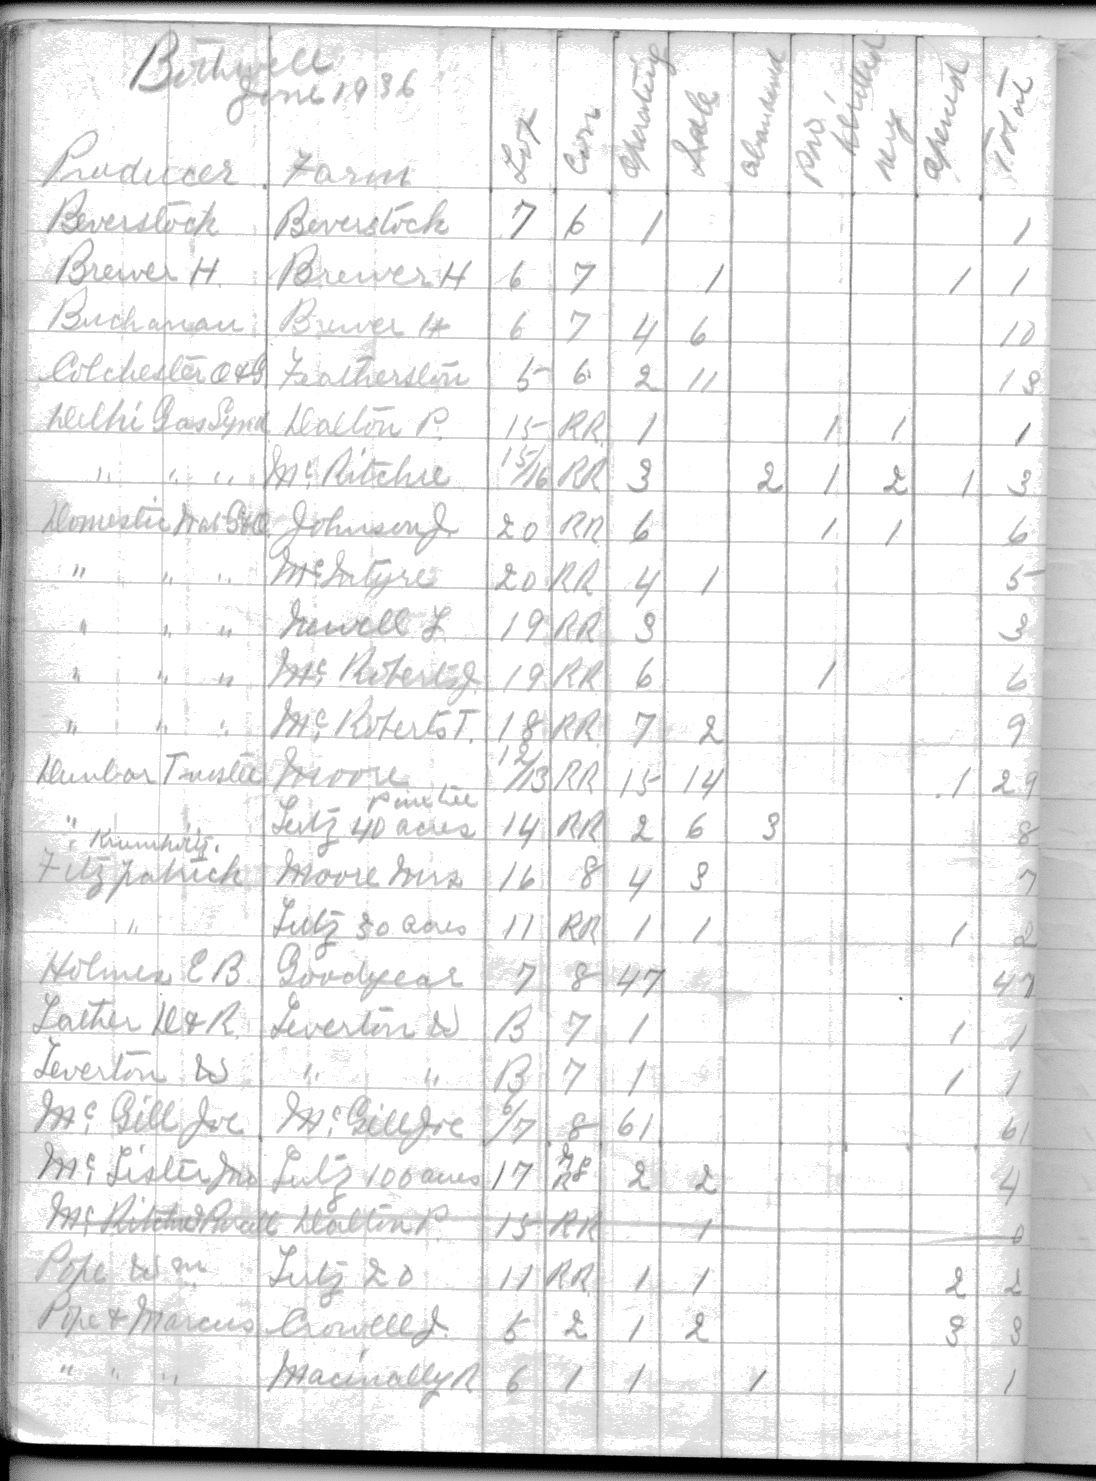 Bothwell
June 1936
Producer Farm Lot Con operating Idle abandoned Pro. drilled new opened Total
Beverstock Beverstock 7 6 1 1
Brewer H. Brewer H 6 7 1 1 1
Buchanan Brewer H 6 7 4 6 10
Colchester O & G Featherston 5 6 2 11 13
Delhi Gas Synd Dalton P. 15 RR 1 1 1 1
" " " Mc Ritchie 15/16 RR 3 2 1 2 1 3
Domestic Nat G&O Johnson J. 20 RR 6 1 1 6
" " " McIntyre 20 RR 4 1 5
" " " Newell L 19 RR 3 3
" " " Mc Roberts J. 19 RR 6 1 6
" " " Mc Roberts T. 18 RR 7 2 9
Dunbar Trustee Moore 12/13 RR 15 14 1 29
" Lutz 40 acres 14 RR 2 6 3 8
Fitzpatrick Moore Mrs 16 8 4 3 7
" Lutz 30 acres 11 RR 1 1 1 2
Holmes E B. Goodyear 7 8 47 47
Lather D & R. Leverton W B 7 1 1 1
Leverton W " " B 7 1 1 1
Mc Gill Joe Mc Gill Joe 6/7 8 61 61
Mc Lister Jno Lutz 100 acres 17 2 2 4
Mc Ritchie Dalton P. 15 RR 1 0
Pope Wm Lutz 20 11 RR 1 1 2 2
Pope & Marcus Crowell J. 5 2 1 2 3 3
" " " Macinally R 6 1 1 1 1